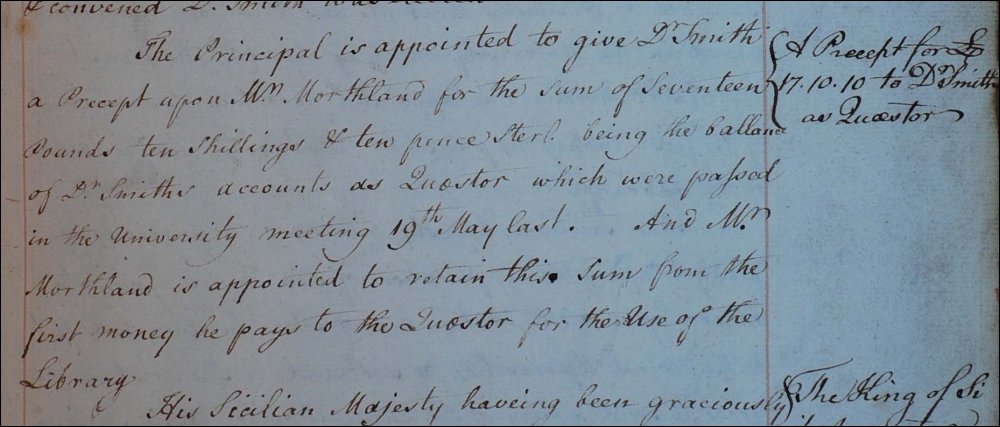 & convened Dr. Smith was
The Principal is appointed to give Dr Smith
a Precept upon Mr. Morthland for the sum of Seventeen
Pounds ten Shillings & ten pence Sterl. being the ballance
of Dr Smiths accounts as Quæstor which were passed
in the University meeting 19th May last. And Mr.
Morthland is appointed to retain this Sum from the
first money he pays to the Quæstor for the Use of the
Library
His Sicilian Majesty haveing been graciously
A Precept for £
17.10.10 to Dr Smith
as Quæstor
The King of Si